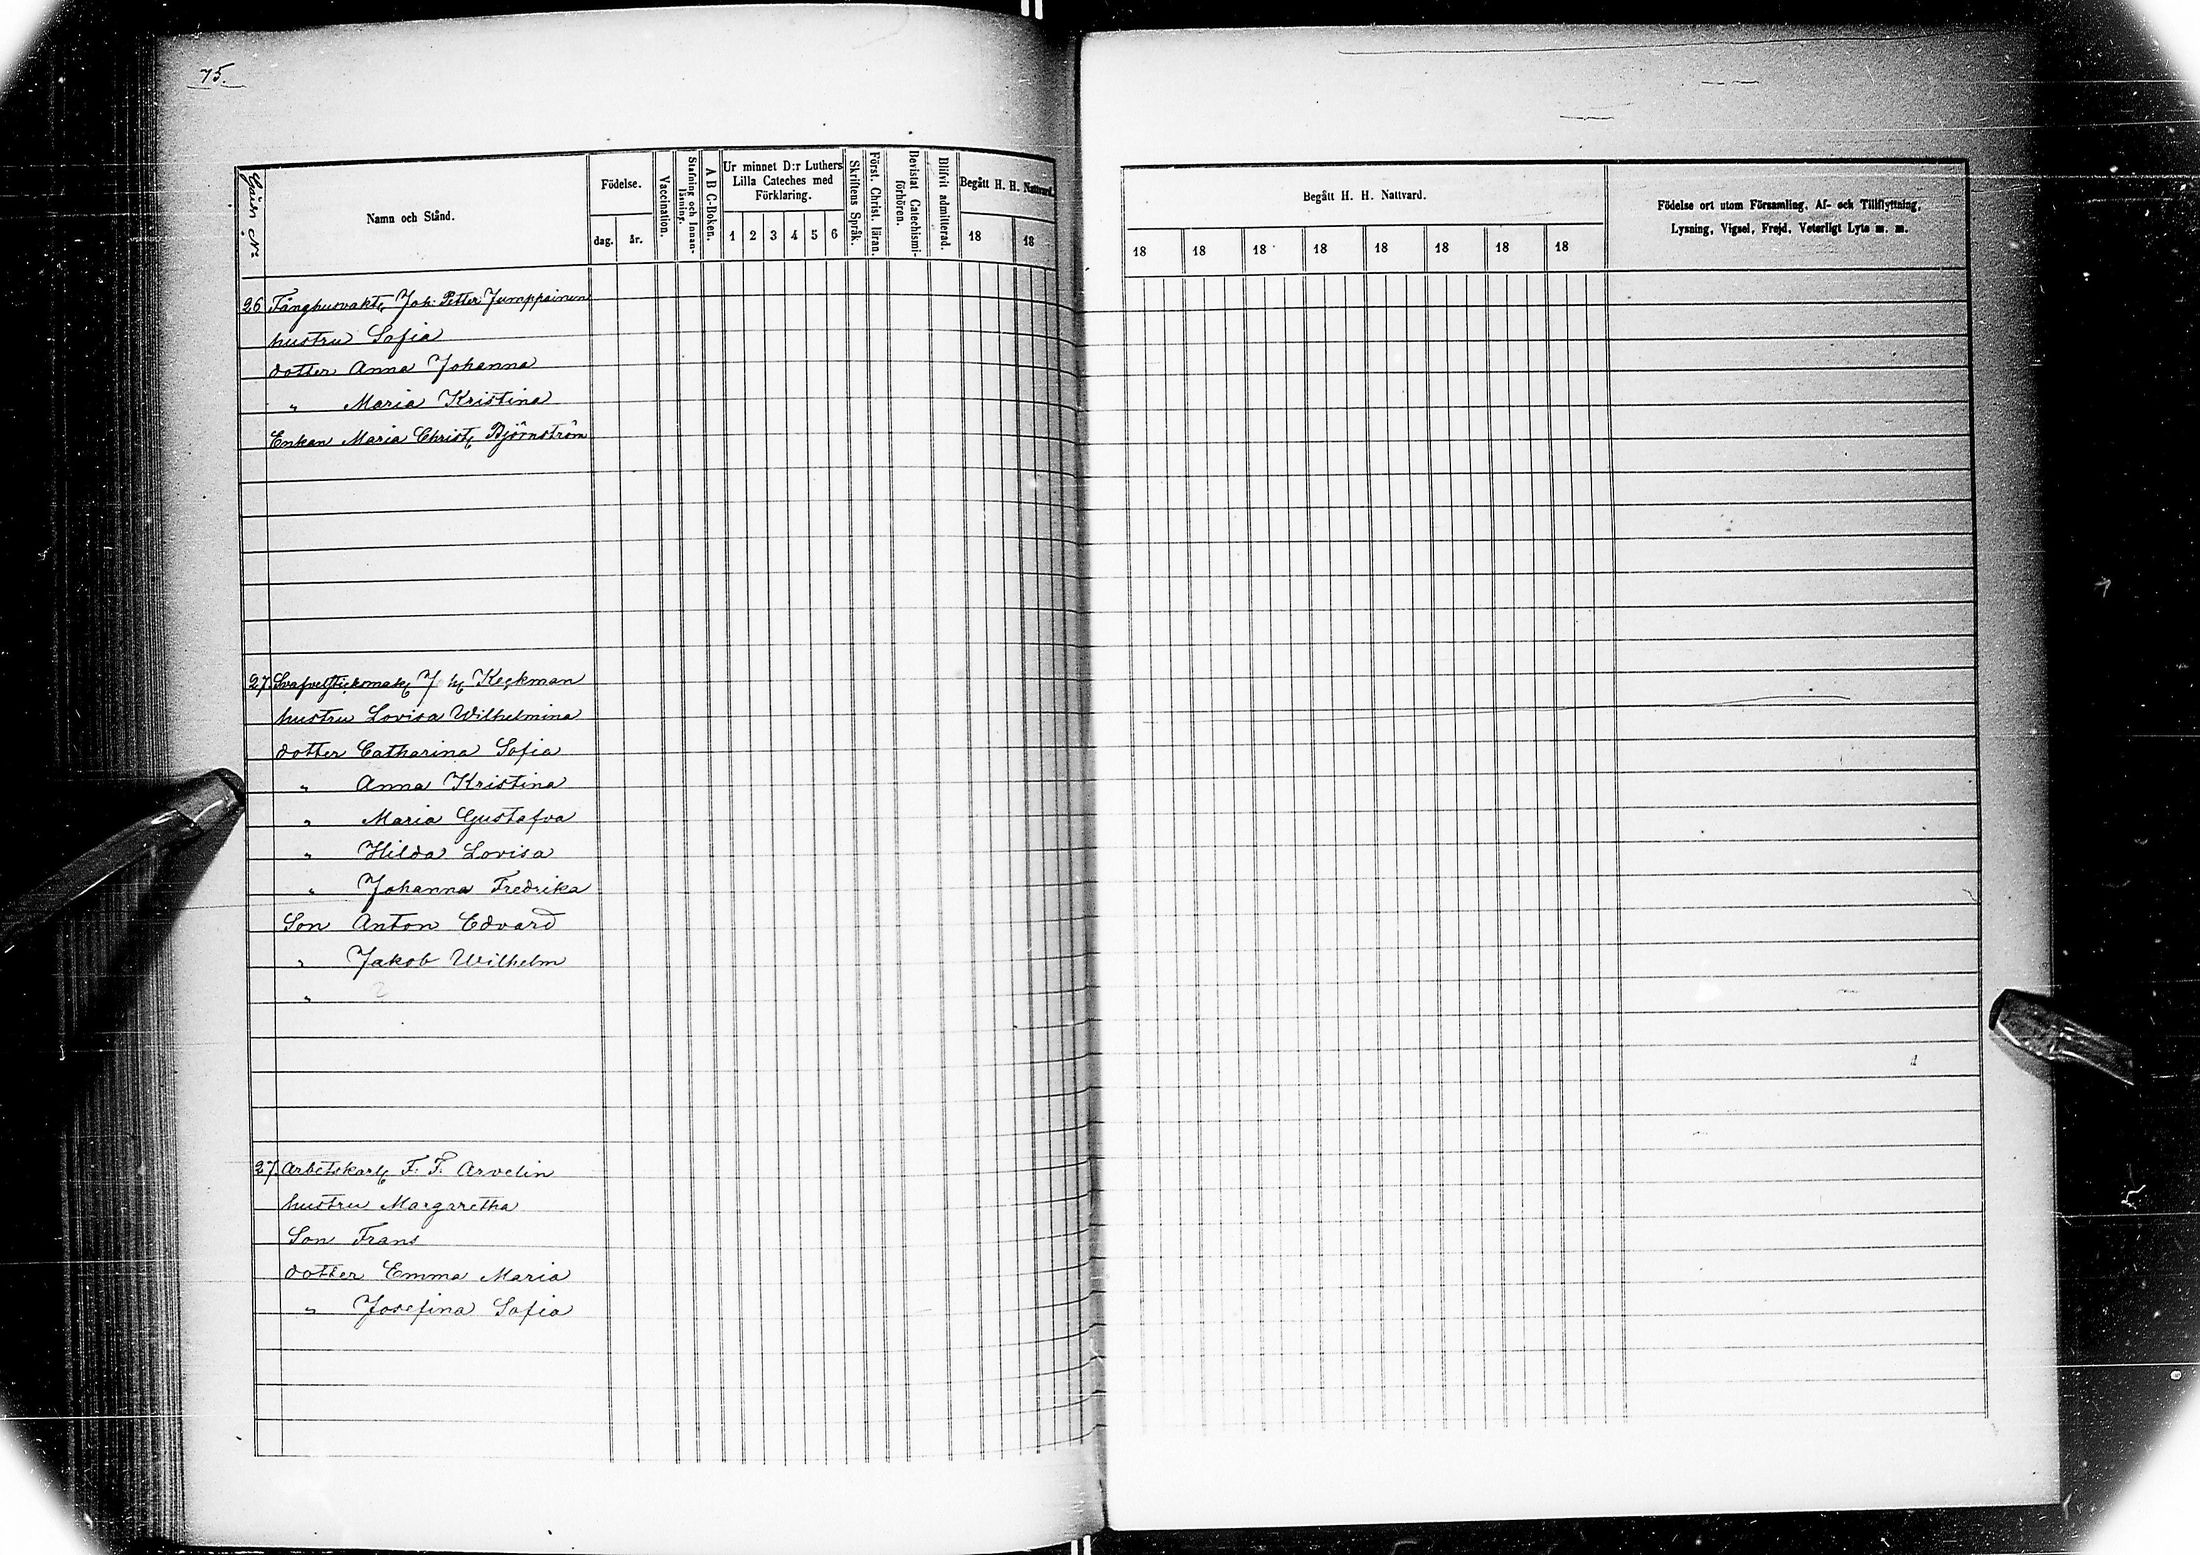 75.
Gårds N:o
Namn och Stånd.
Födelse.
dag.
år.
Vaccination.
Stafning och Innan-läsning.
A B C-Boken.
Ur minnet D:r Luthers
Lilla Cateches med
Förklaring.
1 2 3 4 5 6
Skriftens Språk.
Först. Christ. läran.
Bevistat Catechismi-förhören.
Blifvit admitterad.
Begått H. H. Nattvard.
18 18
Begått H. H. Nattvard.
18 18 18 18 18 18 18 18
Födelse ort utom Församling, Af- och Tillflyttning,
Lysning, Vigsel, Frejd, Veterligt Lyte m. m.
26 Fånghusvakt. Joh. Petter Jumppainen
hustru Sofia
dotter Anna Johanna
" Maria Kristina
Enkan Maria Christ. Björnström
27. Svafvelstickomak. J. H. Keckman
hustru Lovisa Wilhelmina
dotter Catharina Sofia
" Anna Kristina
" Maria Gustafva
" Hilda Lovisa
" Johanna Fredrika
Son Anton Edvard
" Jakob Wilhelm
" 2
27. Arbetskarl. F. F. Arvelin
hustru Margaretha
Son Frans
dotter Emma Maria
" Josefina Sofia